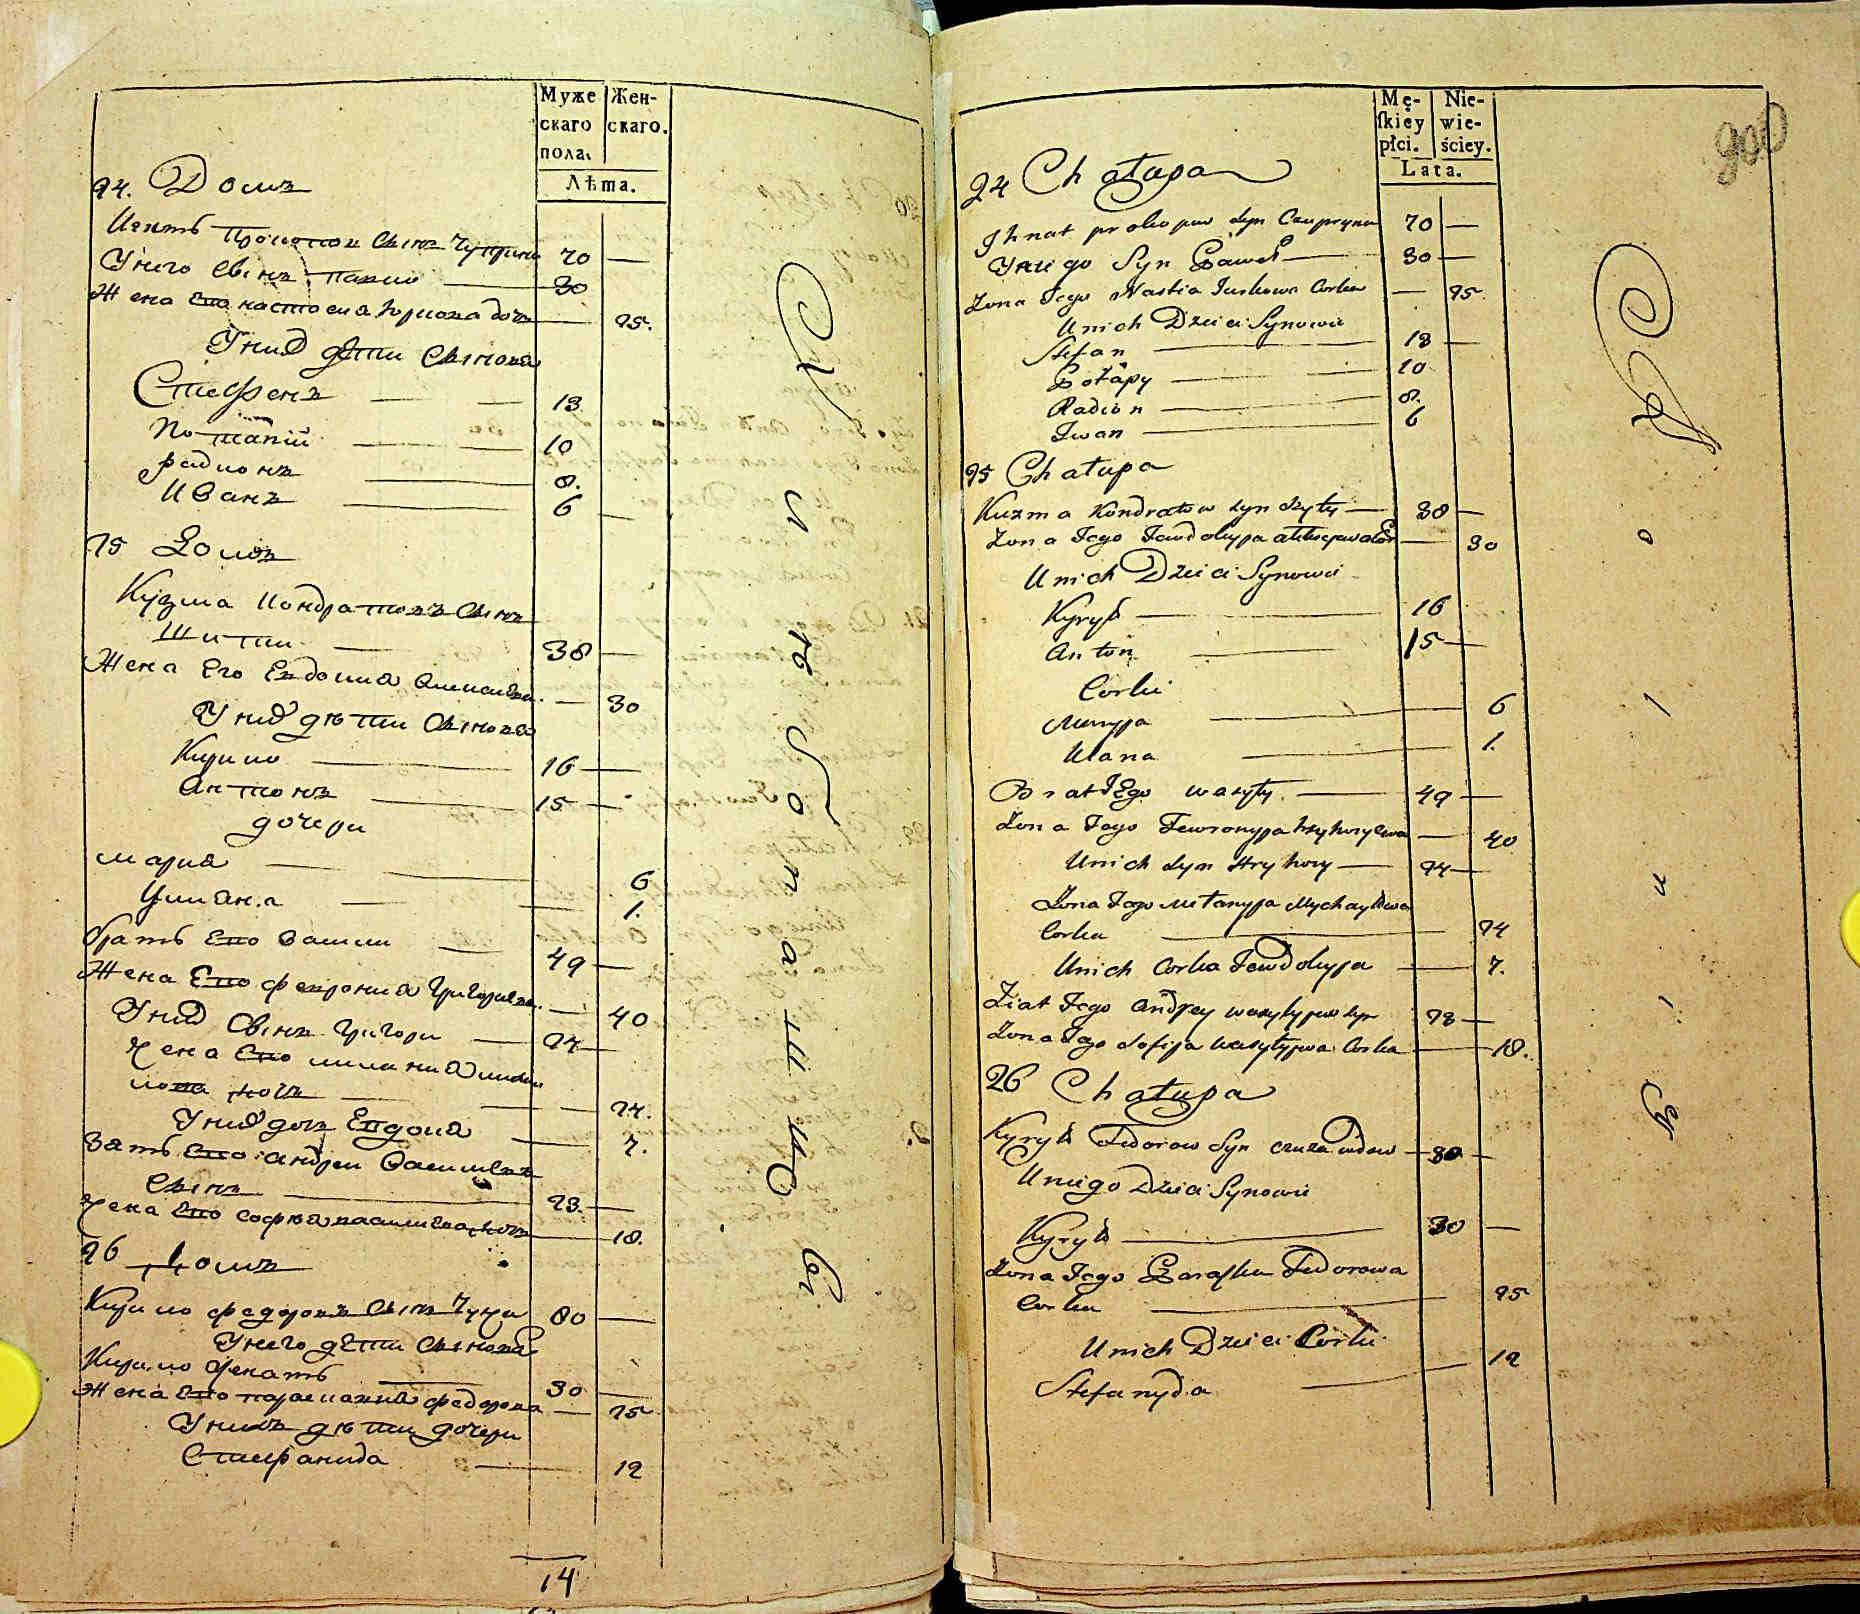 Муже
скаго
пола.
Жен-
скаго.
Лѣта.
24. Домъ
Игнатъ Прокопов Сынъ Чуприна 70 —
У него Сынъ Павло — 30
Жена Его настасиа Юркова дочь — 25.
У них дѣти Сынова
Стефенъ — 13
Потапій — 10
радионъ — 8.
Иванъ — 6 —
25 Домъ
Кузма Кондратовъ Сынъ
Шити — 38 —
Жена Его Евдокиа — 30
У них дѣти Сынова
Кирило — 16 —
Антонъ — 15 —
дочери
мариа — 6
Улиана — 1.
братъ Его Васили — 49 —
Жена Его феврониа Григориева — 40
У них Сынъ Григори — 24 —
Жена Его миланиа михаи
лова дочь — 24.
У них дочь Евдокиа — 7.
Зать Его андреи Василиевъ
Сынъ — 23. —
Жена Его софиа василиева дочь — 18.
26 Домъ
Кирило федоровъ Сынъ 80 —
У него дѣти Сынова
Кирило Женатъ — 30 —
жена Его параскавиа федорова — 25
У нихъ дѣти дочери
Стефанида — 12
14
Mę-
ſkiey
płci.
Nie-
wie-
ściey.
Lata.
900
24 Chałupa
Ihnat prokopuw Syn Czupryna 70 —
U niego Syn Paweł — 30 —
Zona Jego Nastia Jurkowa Corka — 25.
U nich Dzieci Synowie
Stefan — 13 —
Potapy — 10
Radion — 8.
Iwan — 6
25 Chałupa
Kuzma Kondratow syn Szyty — 38 —
Zona Jego Jewdokyja — 30
U nich Dzieci Synowie
Kyryło — 16 —
Anton — 15 —
Corki
Maryja — 6
Ulana — 1.
Brat Jego wasyly — 49 —
Zona Jego Fewronyja hryhoryewa — 40
U nich syn Hryhory — 24 —
Zona Jego Mełanyja Mychayłowa
Corka — 24
U nich Corka Jewdokyja — 7.
Ziat Jego Andrey wasylyjuw syn 23 —
Zona Jego Sofija wasylyjwa Corka — 18.
26 Chałupa
Kyryło Fedorow Syn — 80 —
U niego Dzieci Synowie
Kyryło — 30 —
Zona Jego Paraska Fedorowa
Corka — 25
U nich Dzieci Corki
Stefanyda — 12